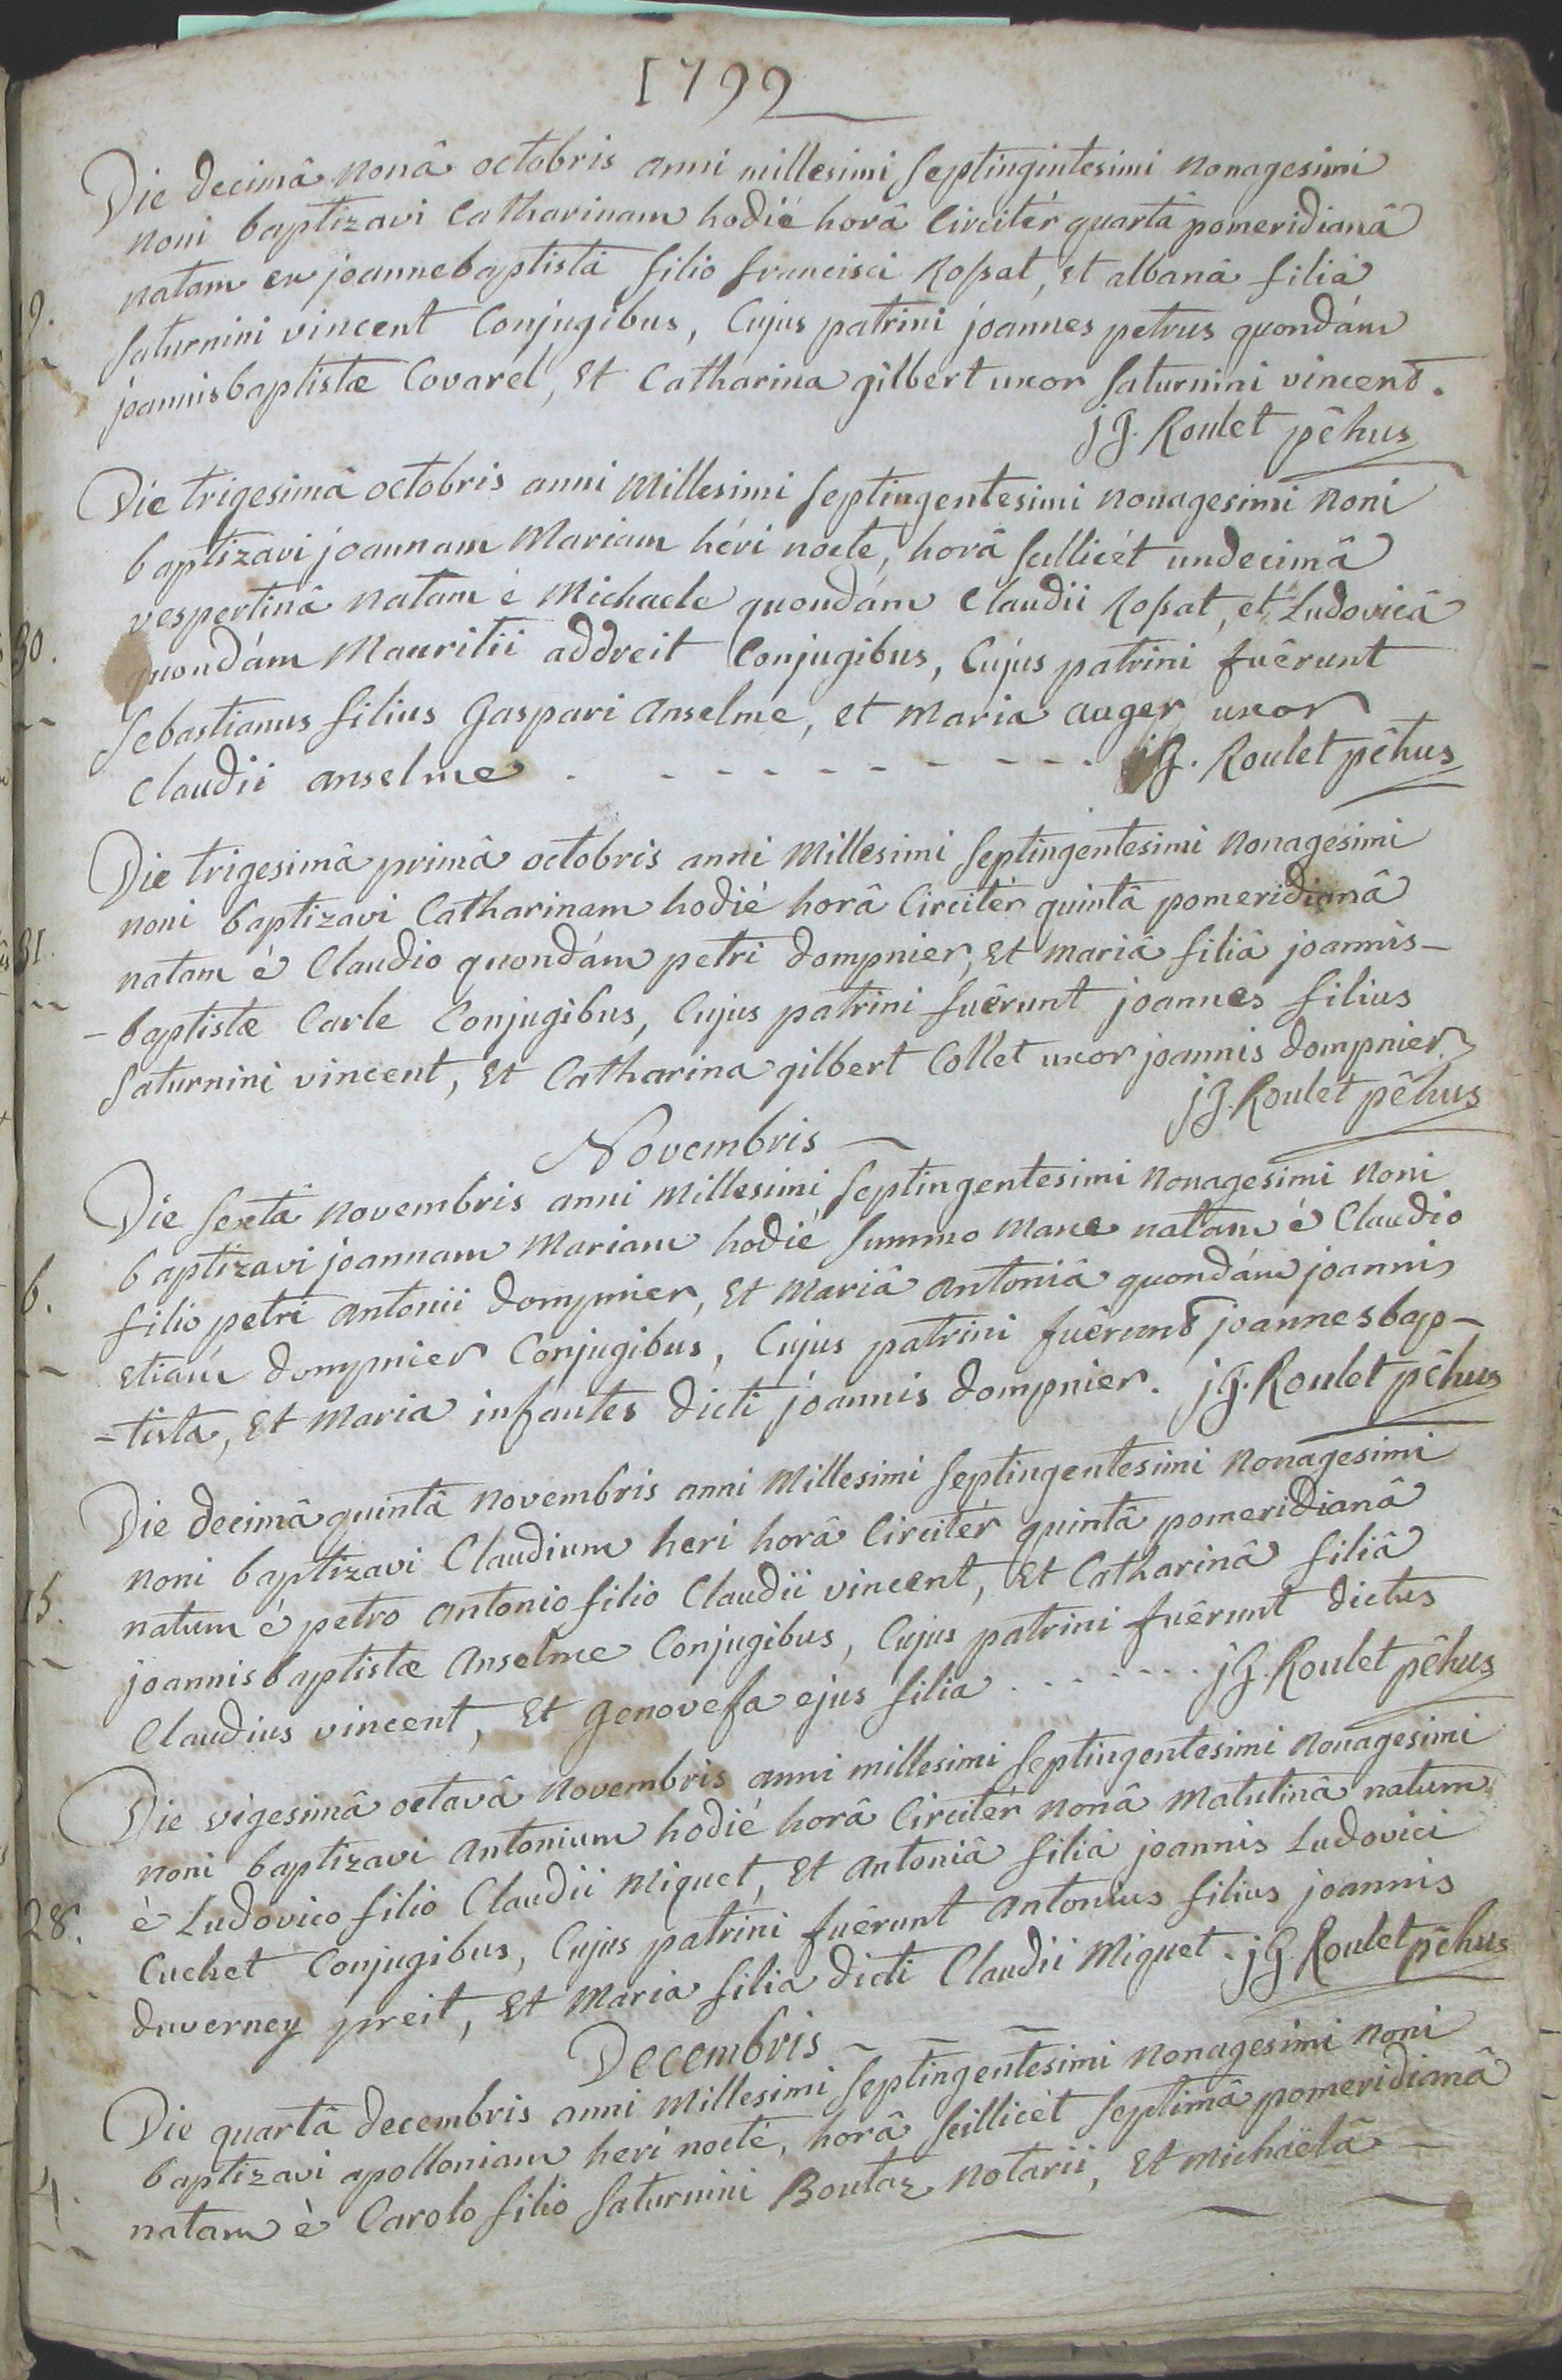 1799
Die decimâ nonâ octobris anni millesimi septingintesimi nonagesimi
noni baptizavi Catharinam hodié horâ Circitér quartâ pomeridianâ
natam ex joannebaptistâ filio francisci Rossat, et albanâ filiâ
19.
saturnini vincent Conjugibus, Cujus patrini joannes petrus quondám
joannisbaptistæ Covarel, Et Catharina gilbert uxor saturnini vincent.
j G. Roulet pêhus
Die trigesimâ octobris anni Millesimi septingentesimi nonagesimi noni
baptizavi joannam Mariam héri nocte, horâ scillicét undecimâ
vespertinâ natam é Michaele quondám Claudii Rossat, et Ludovicâ
30.
quondám Mauritii addreit Conjugibus, Cujus patrini fuêrunt
Sebastianus filius Gaspari Anselme, et Maria auger uxor
Claudii anselme . - - - - - - - - - j G. Roulet pêhus
Die trigesimâ primâ octobris anni Millesimi septingentesimi nonagesimi
noni baptizavi Catharinam hodié horâ Circitér quintâ pomeridianâ
31.
natam é Claudio quondám petri dompnier, Et mariâ filiâ joannis-
-baptistæ Carle Conjugibus, Cujus patrini fuêrunt joannes filius
saturnini vincent, Et Catharina gilbert Collet uxor joannis dompnier
j G. Roulet pêhus
Novembris
Die sextâ novembris anni Millesimi septingentesimi nonagesimi noni
baptizavi joannam Mariam hodié summo mane natam é Claudio
6.
filio petri antonii dompnier, Et Mariâ antoniâ quondám joannis
etiám dompnier Conjugibus, Cujus patrini fuêrunt joannesbap-
-tista, Et Maria infantes dicti joannis dompnier. j G. Roulet pêhus
Die decimâ quintâ novembris anni Millesimi septingentesimi nonagesimi
noni baptizavi Claudium heri horâ Circitér quintâ pomeridianâ
15.
natum é petro antonio filio Claudii vincent, Et Catharinâ filiâ
joannisbaptistæ Anselme Conjugibus, Cujus patrini fuêrunt dictus
Claudius vincent, Et genovefa ejus filia . - - - - - - j G. Roulet pêhus
Die vigesimâ octavâ novembris anni millesimi septingentesimi nonagesimi
noni baptizavi antonium hodié horâ Circitér nonâ Matutinâ natum
28.
è Ludovico filio Claudii Miquet, Et antoniâ filiâ joannis Ludovici
Cuchet Conjugibus, Cujus patrini fuêrunt antonius filius joannis
duverney preit, Et Maria filia dicti Claudii Miquet. j G. Roulet pêhus
Decembris
Die quartâ decembris anni Millesimi septingentesimi nonagesimi noni
baptizavi apolloniam heri nocté, horâ scillicét septimâ pomeridianâ
4.
natam è Carolo filio saturnini Boutaz notarii, Et michaëlâ